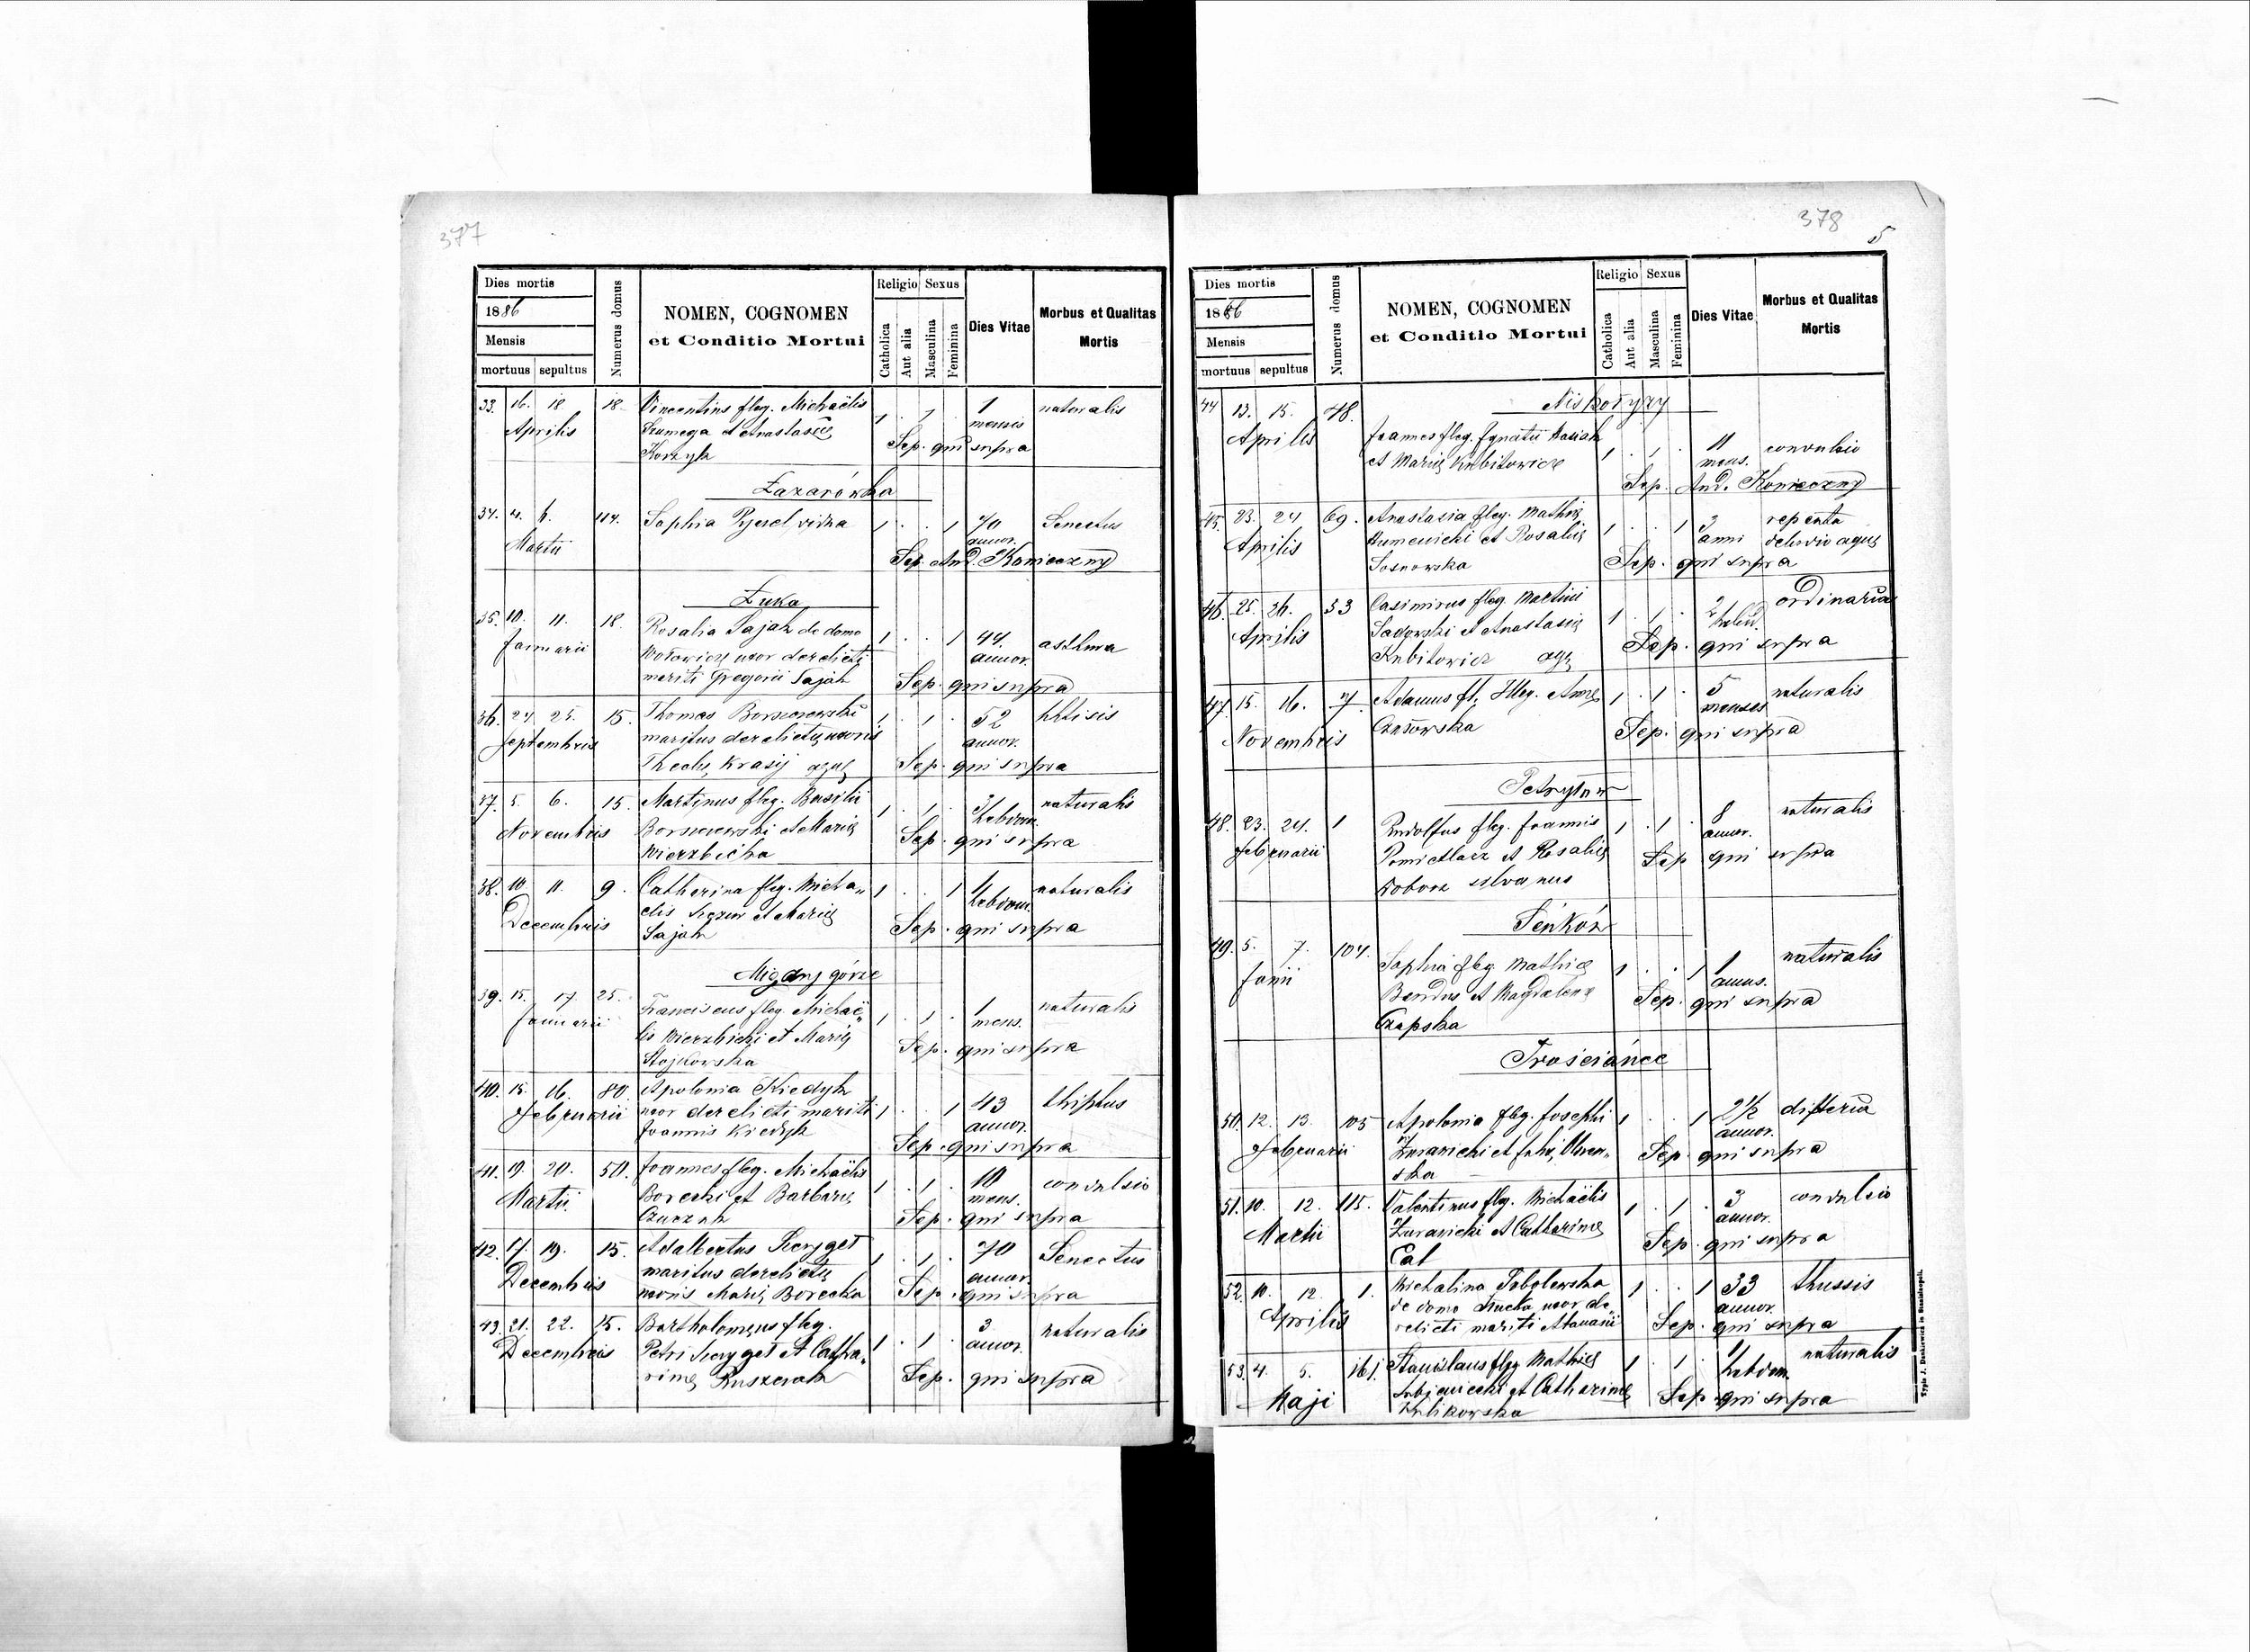 377
Dies mortis
1886
Mensis
mortuus sepultus
Numerus domus
NOMEN, COGNOMEN
et Conditio Mortui
Religio Sexus
Catholica
Aut alia
Masculina
Feminina
Dies Vitae
Morbus et Qualitas
Mortis
33. 16. 18. 18. Vincentius fleg. Michaëlis 1 . 1 1 naturalis
Aprilis et Anastasię mensis
Korzyk Sep. qui supra
Łazarówka
34. 4. 6. 114. Sophia vidua 1 . . 1 70 Senectus
Martii annor.
Sep. And. Konieczny
Łuka
35. 10. 11. 18. Rosalia Sajak de domo 1 . . 1 44. asthma
Januarii Wołowicz uxor derelicti annor.
mariti Gregorii Sajak Sep. qui supra
36. 24 25. 15. Thomas Borszczewski 1 . 1 . 52 phtisis
Septembris maritus derelictę uxoris annor.
Theclę Krasij Sep. qui supra
37. 5. 6. 15. Martinus fleg. Basilii 1 . 1 . 3 naturalis
Novembris Borszczewski et Marię hebdom.
Wierzbicka Sep. qui supra
38. 10. 11. 9. Catherina fleg. Micha„ 1 . . 1 1 naturalis
Decembris elis et Marię hebdom.
Sajak Sep. qui supra
Miganj górze
39. 15. 17. 25. Franciscus fleg. Michaë„ 1 . 1 . 1 naturalis
Januarii lis Wierzbicki et Marię mens.
Stojkowska Sep. qui supra
40. 15. 16. 80. Apolonia Kiedyk 1 . . 1 43 thiphus
Februarii uxor derelicti mariti annor.
Joannis Kiedyk Sep. qui supra
41. 19. 20. 50. Joannes fleg. Michaëlis 1 . 1 . 10 convulsio
Martii. Borecki et Barbarę mens.
Czuczak Sep. qui supra
42. 17. 19. 15. Adalbertus 1 . 1 . 70 Senectus
Decembris maritus derelictę annor.
uxoris Marię Borecka Sep. qui supra
43. 21. 22. 15. Bartholomęus fleg. 1 . 1 . 3 naturalis
Decembris Petri et Catha„ annor.
rinę Sep. qui supra
378
5
Dies mortis
1886
Mensis
mortuus sepultus
Numerus domus
NOMEN, COGNOMEN
et Conditio Mortui
Religio Sexus
Catholica
Aut alia
Masculina
Feminina
Dies Vitae
Morbus et Qualitas
Mortis
44 13. 15. 78.
Aprilis Joannes fleg. Ignatii 1 . 1 . 11 convulsio
et Marię Kubitowicz mens.
Sep. And. Konieczny
45. 23. 24 69. Anastasia fleg. Mathię 1 . . 1 3 repenta
Aprilis et Rosalię anni
Sosnowska Sep. qui supra
46. 25. 26. 53 Casimirus fleg. Martini 1 . 1 . 2 ordinaria
Aprilis Sadowski et Anastasię hebd.
Kubitowicz Sep. qui supra
47. 15. 16. 7. Adamus fl. Illeg. Annę 1 . 1 . 5 naturalis
Novembris menses
Sep. qui supra
Petryłów
48. 23. 24. 1 Rudolfus fleg. Joannis 1 . 1 . 8 naturalis
Februarii et Rosalię annor.
silvanus Sep qui supra
49. 5. 7. 104. Sophia fleg. Mathię 1 . . 1 1 naturalis
Junii Bendus et Magdalenę annus.
Czapska Sep. qui supra
Trościańce
50. 12. 13. 105 Apolonia fleg. Josephi 1 . . 1 2 1/2 difteria
Februarii Żurawicki et annor.
ska Sep qui supra
51. 10. 12. 115. Valentinus fleg. Michaëlis 1 . 1 . 3 convulsio
Martii Żurawicki et Catharinę annor.
Cal Sep. qui supra
52. 10. 12. 1. Michalina Sobolewska 1 . . 1 33 thussis
Aprilis de domo uxor de„ annor.
relicti mariti Atanasii Sep. qui supra
53. 4. 5. 161. Stanislaus fleg. Mathię 1 . 1 . 1 naturalis
Maji et Catharinę hebdom.
Kulikowska Sep. qui supra